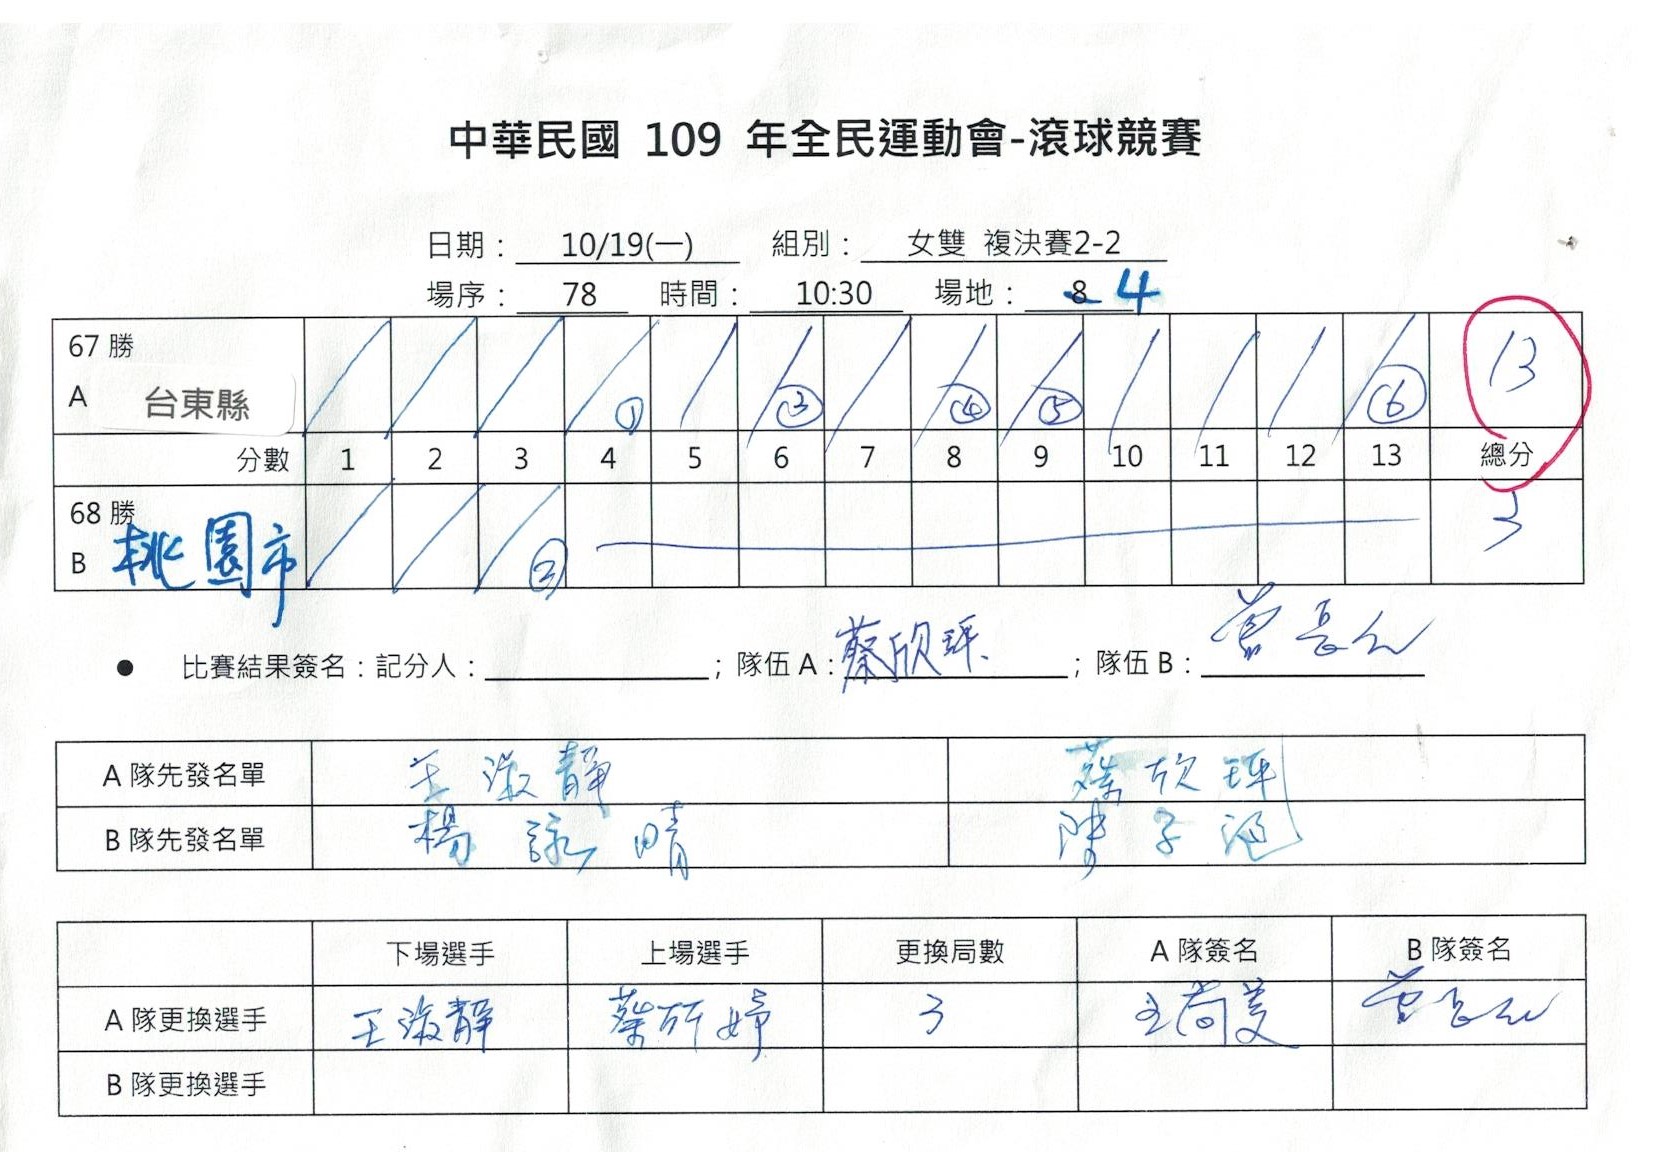 中華民國 109 年全民運動會-滾球競賽
日期： 10/19(一) 組別： 女雙 複決賽2-2
場序： 78 時間： 10:30 場地： 8 4
67 勝
A 台東縣 ① ③ ④ ⑤ ⑥ 13
分數 1 2 3 4 5 6 7 8 9 10 11 12 13 總分
68 勝
B 桃園市 ② 3
● 比賽結果簽名：記分人： ；隊伍 A： 蔡欣 ；隊伍 B： 曾
A 隊先發名單 王淑靜 蔡欣
B 隊先發名單 楊詠晴 陳子
下場選手 上場選手 更換局數 A 隊簽名 B 隊簽名
A 隊更換選手 王淑靜 蔡妍婷 3 王尚 曾
B 隊更換選手